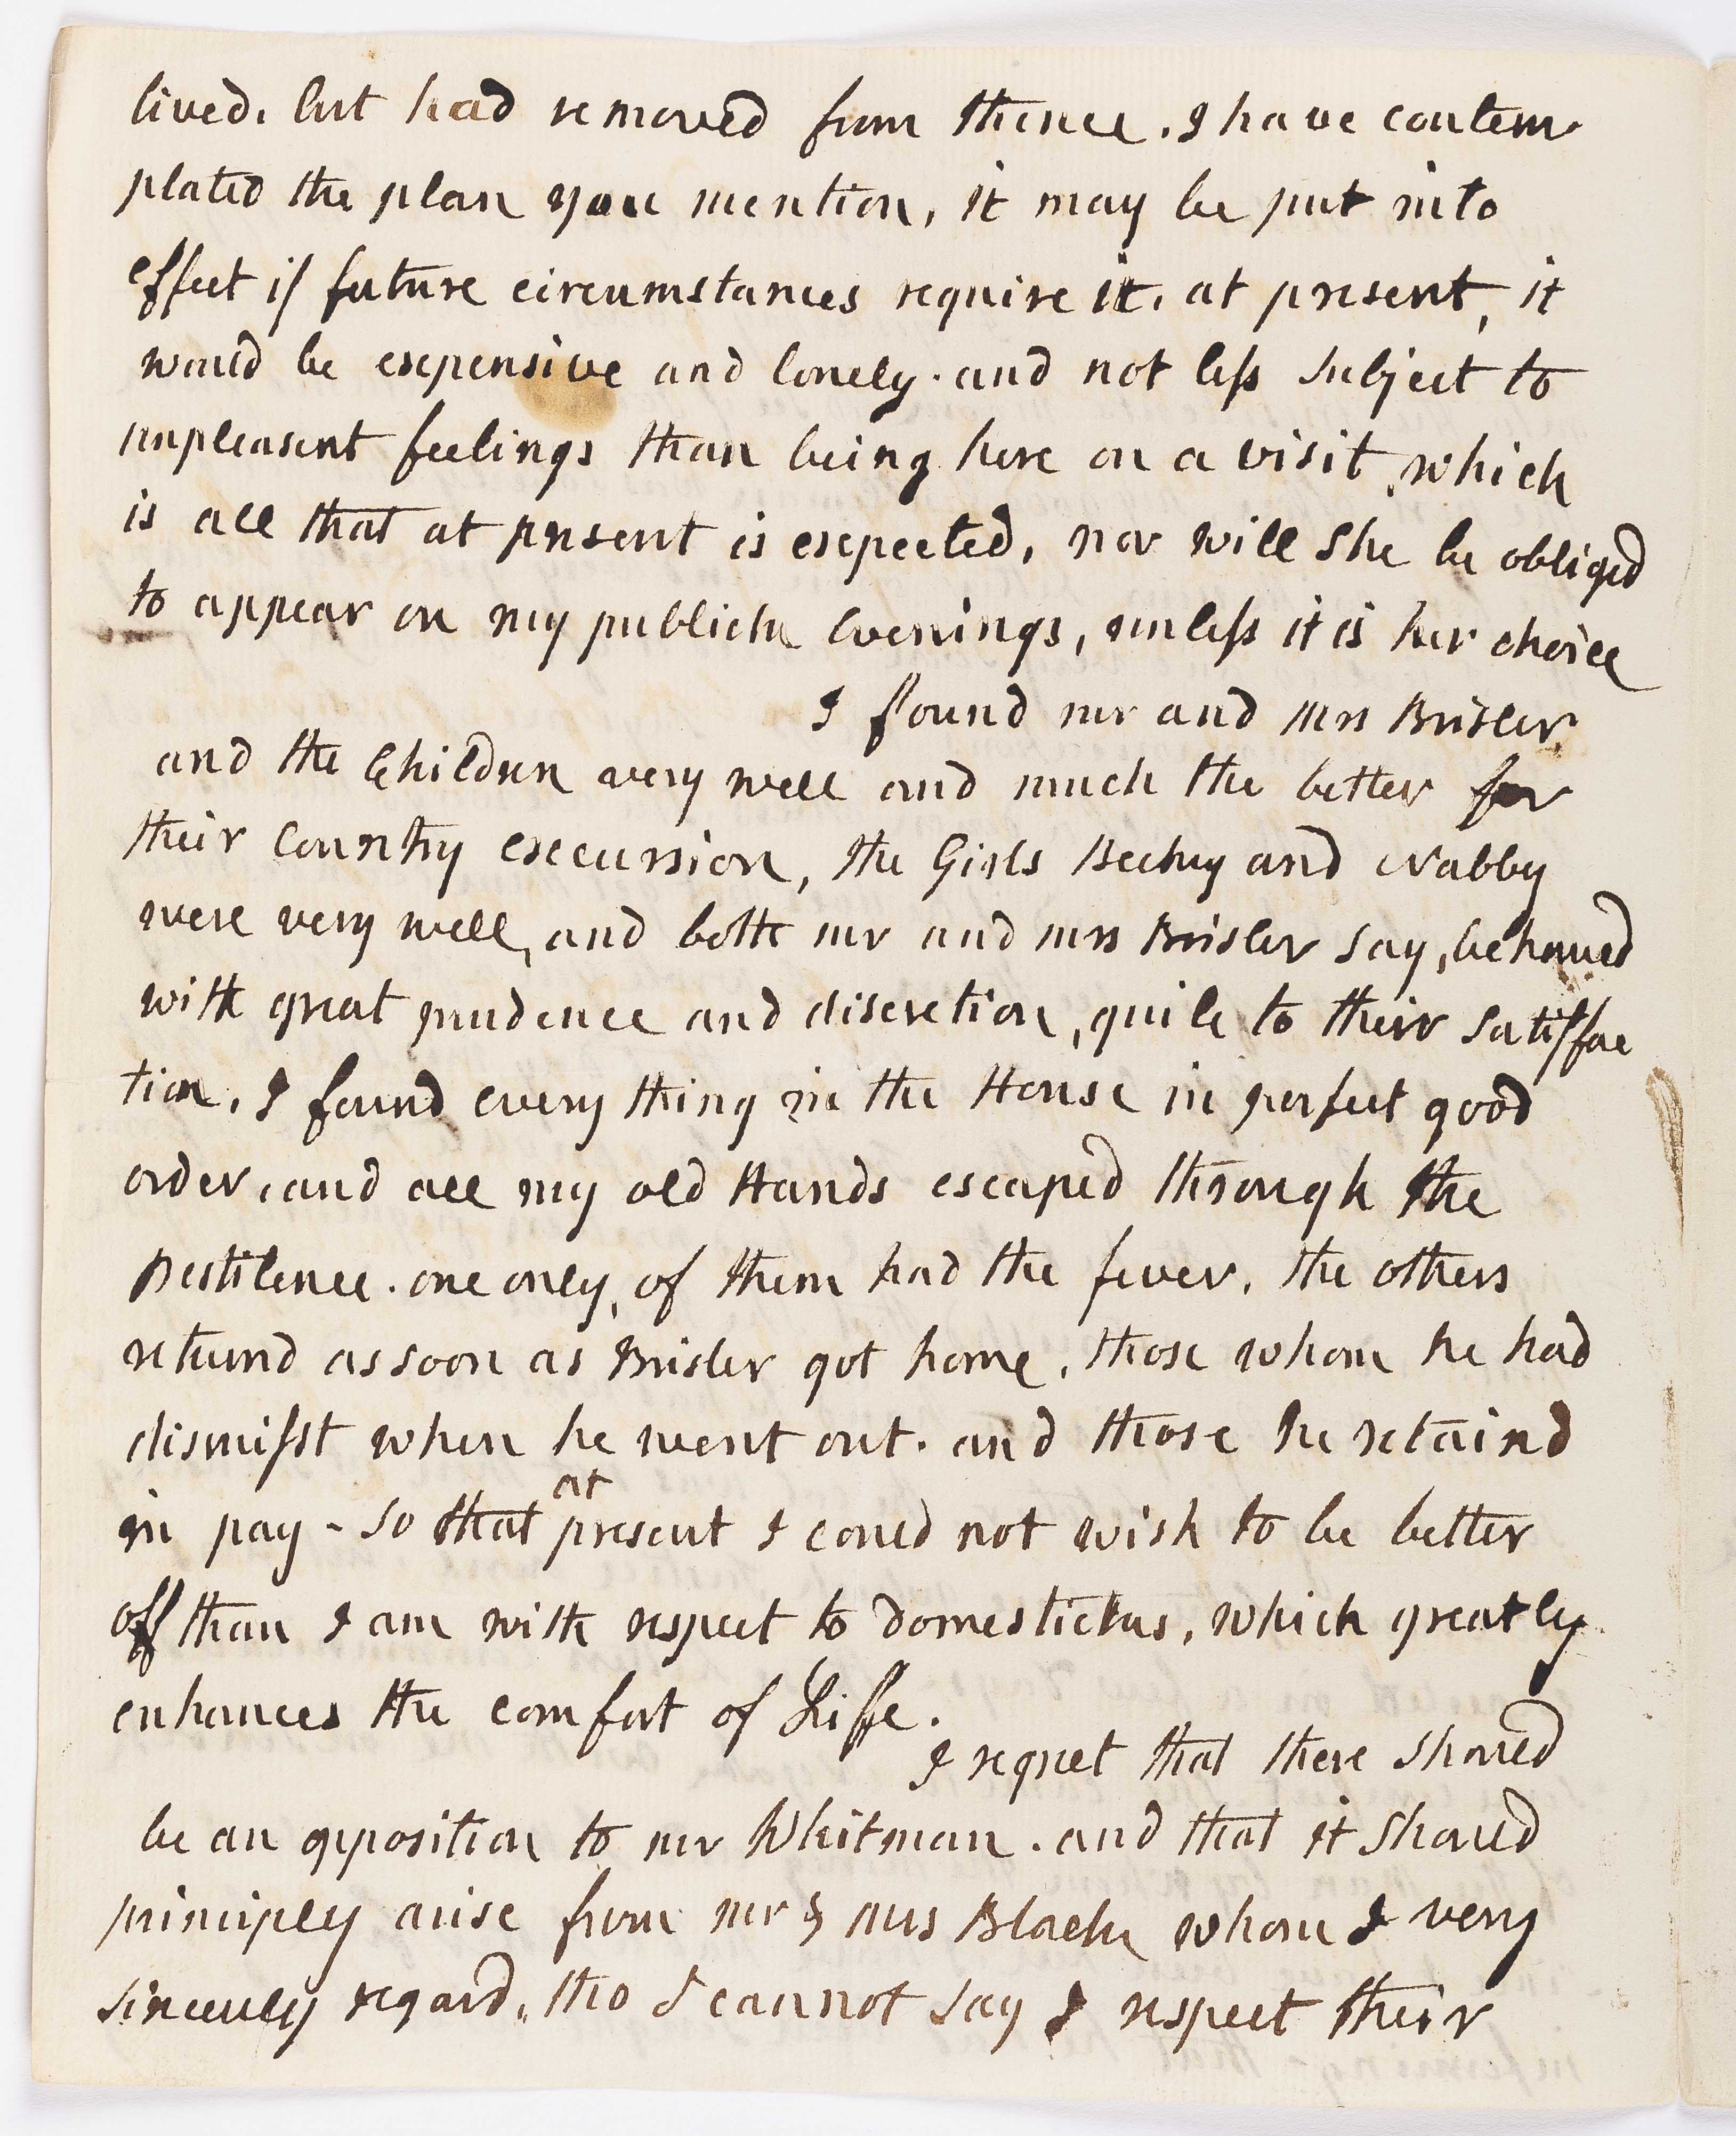 lived. but had removed from thence. I have contem
plated the plan you mention, it may be put into
effect if future circumstances require it. at present, it
would be expensive and lonely. and not less subject to
unpleasent feelings than being here on a visit, which
is all that at present is expected, nor will she be obliged
to appear on my publick Evenings, unless it is her choice
I found mr and mrs Brisler
and the Children very well and much the better for
their Country excursion, the Girls Becky and Nabby
were very well, and both mr and mrs Brisler say, behaved
with great prudence and discretion, quite to their satisfac
tion. I found every thing in the House in perfect good
order, and all my old Hands escaped through the
Pestilence. one only, of them had the fever. the others
returnd as soon as Brisler got home. those whom he had
dismisst when he went out. and those he retaind
in pay - so that at present I could not wish to be better
off than I am with respect to domesticks, which greatly
enhances the comfort of Life.
I regret that there should
be an opposition to mr Whitman. and that it should
principly arise from mr & mrs Black whom I very
sincerely regard, tho I cannot say I respect their